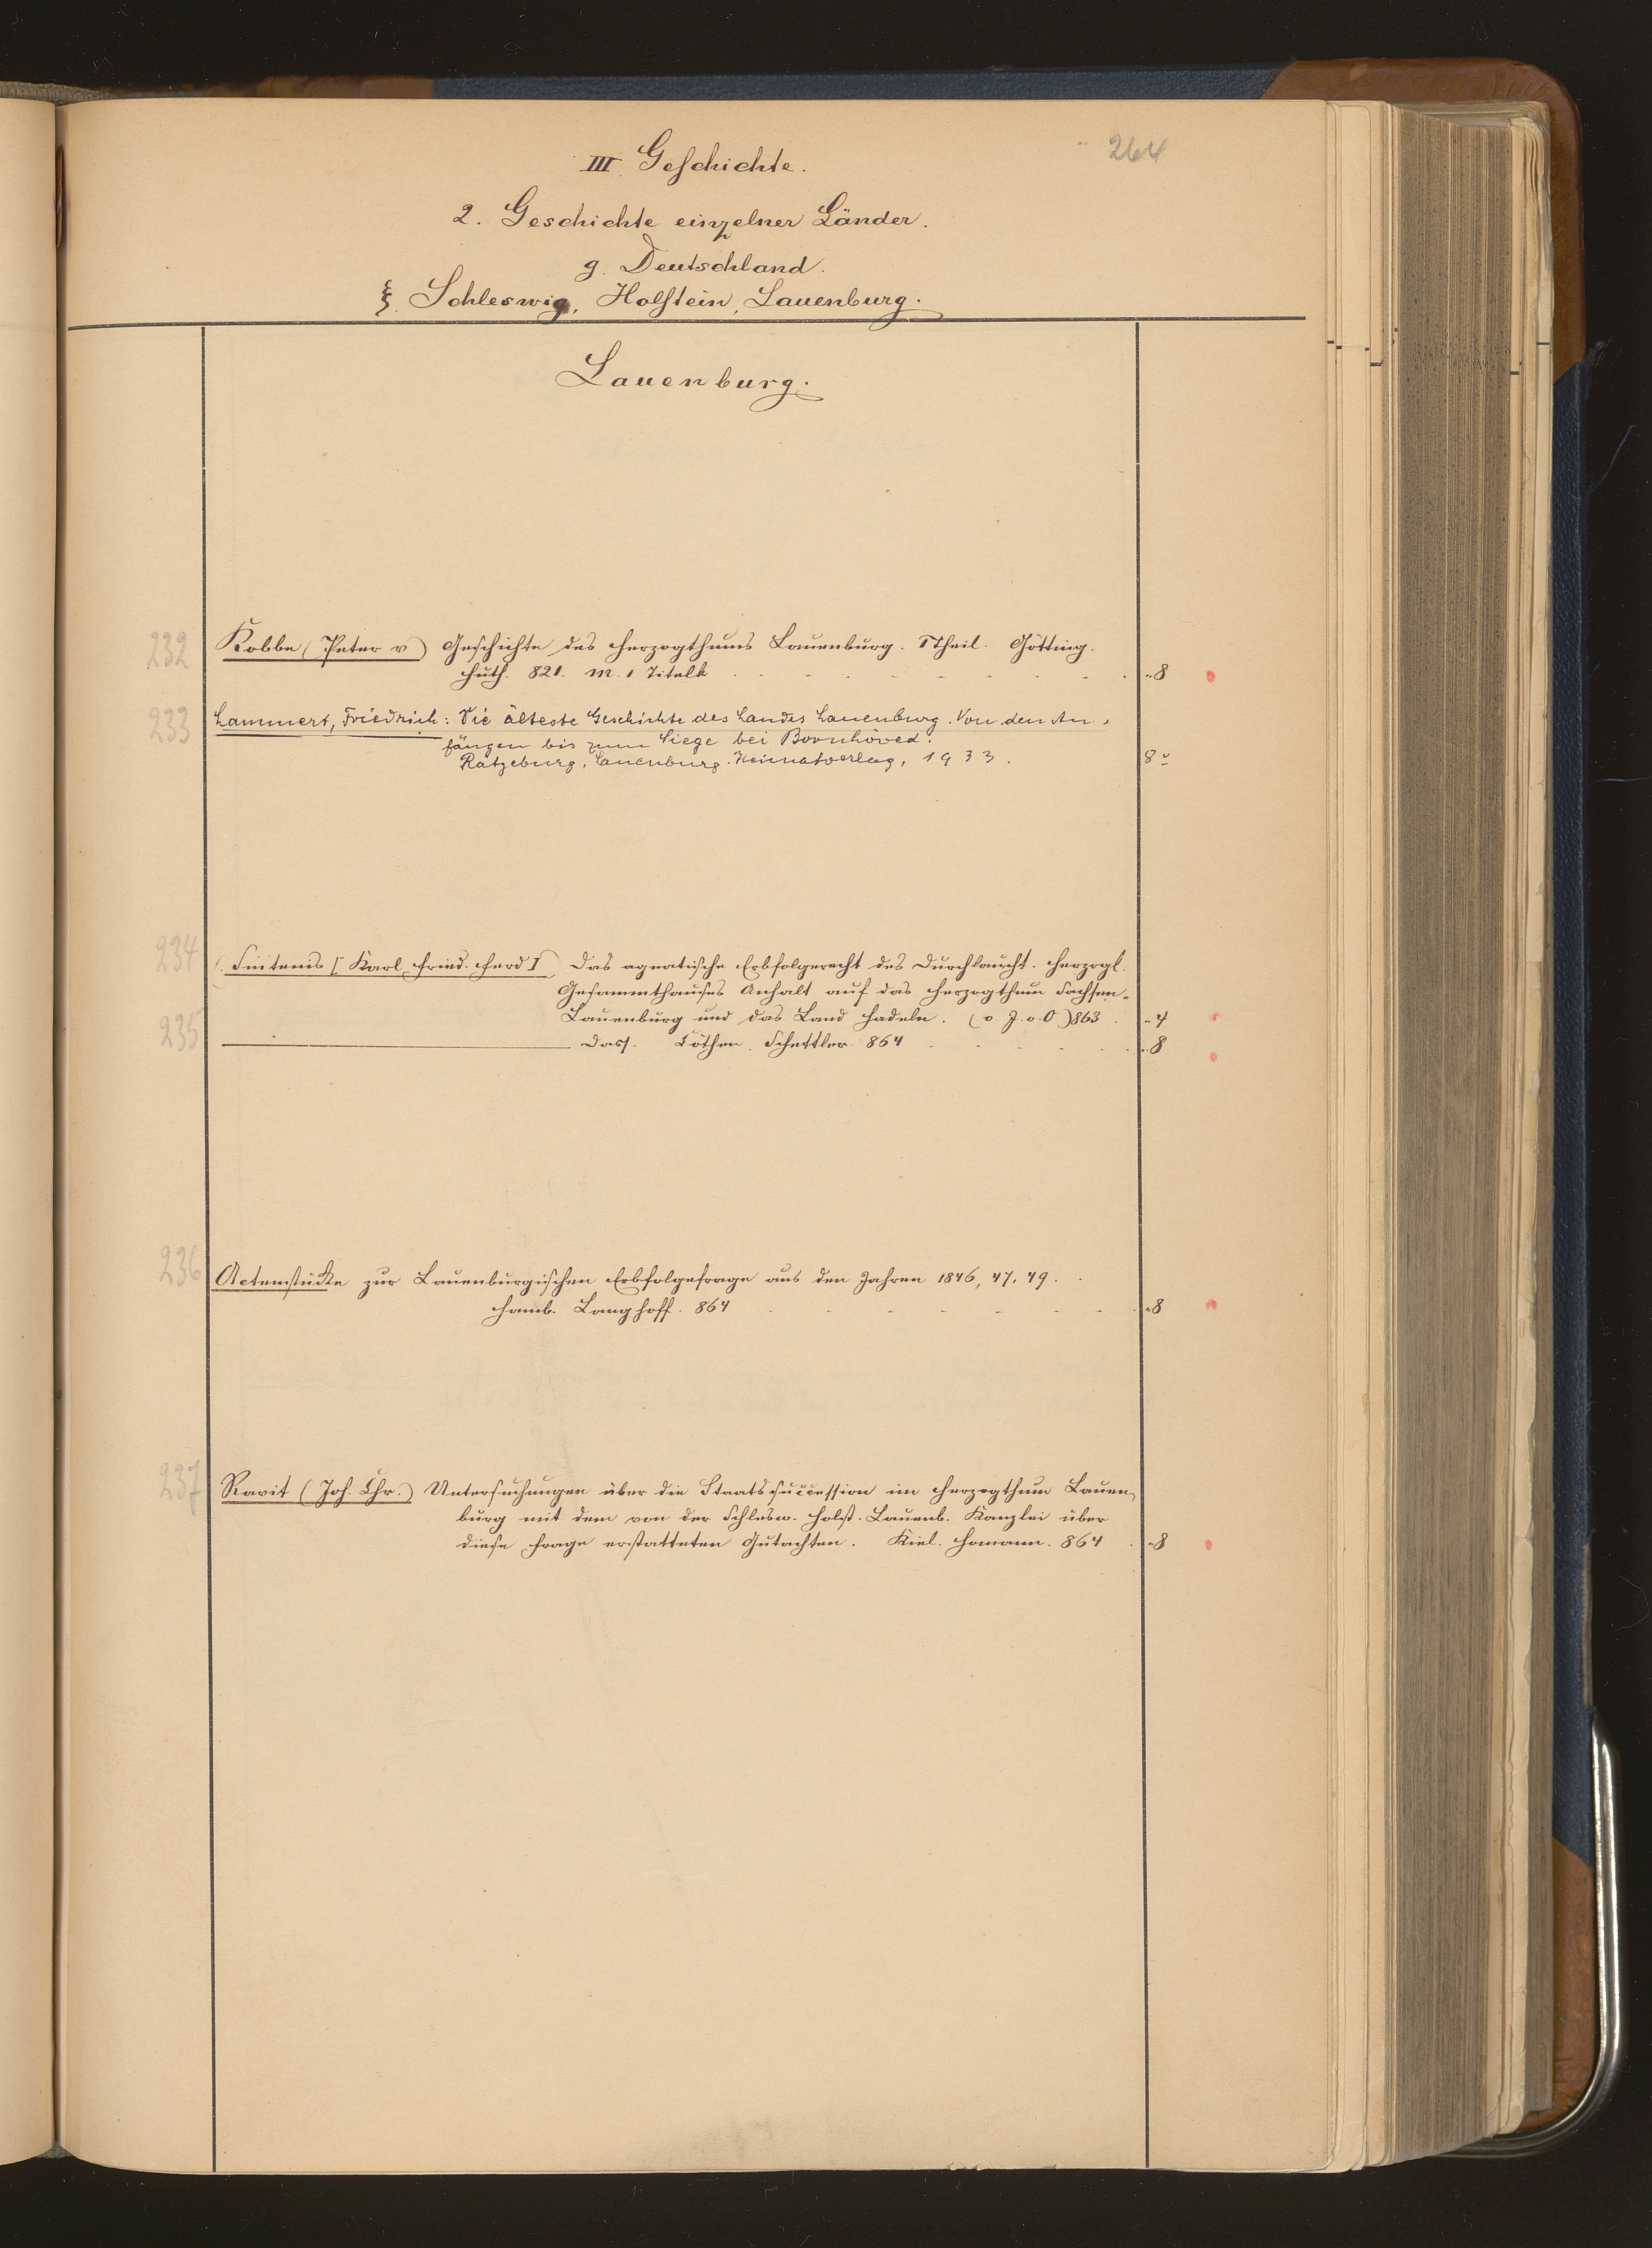 264
III. Geschichte.
2. Geschichte einzelner Länder.
g. Deutschland.
ξ. Schleswig, Holstein, Lauenburg.
Lauenburg.
232 Kobbe (Peter v) Geschichte des Herzogthums Lauenburg. I Theil. Götting.
Huth. 821. M. 1 Titelk - 8
233 Lammert, Friedrich: Die älteste Geschichte des Landes Lauenburg. Von den An-
fängen bis zum Siege bei Bornhöved.
Ratzeburg, Lauenburg. Heimatverlag, 1933. 8°
234 (Sintenis [Karl Fried. Ferd]) Das agnatische Erbfolgerecht des Durchlaucht. Herzogl.
Gesammthauses Anhalt auf das Herzogthum Sachsen-
Lauenburg und das Land Hadeln. (o. J. o. O) 863 - 4
235 Dass. Cöthen. Schettler. 864 - 8
236 Actenstücke zur Lauenburgischen Erbfolgefrage aus den Jahren 1846, 47, 49.
Hamb. Langhoff. 864 - 8
237 Ravit (Joh. Chr.) Untersuchungen über die Staatssuccession im Herzogthum Lauen-
burg mit dem von der Schlesw. Holst. Lauenb. Kanzlei über
diese Frage erstatteten Gutachten. Kiel. Homann. 864 - 8